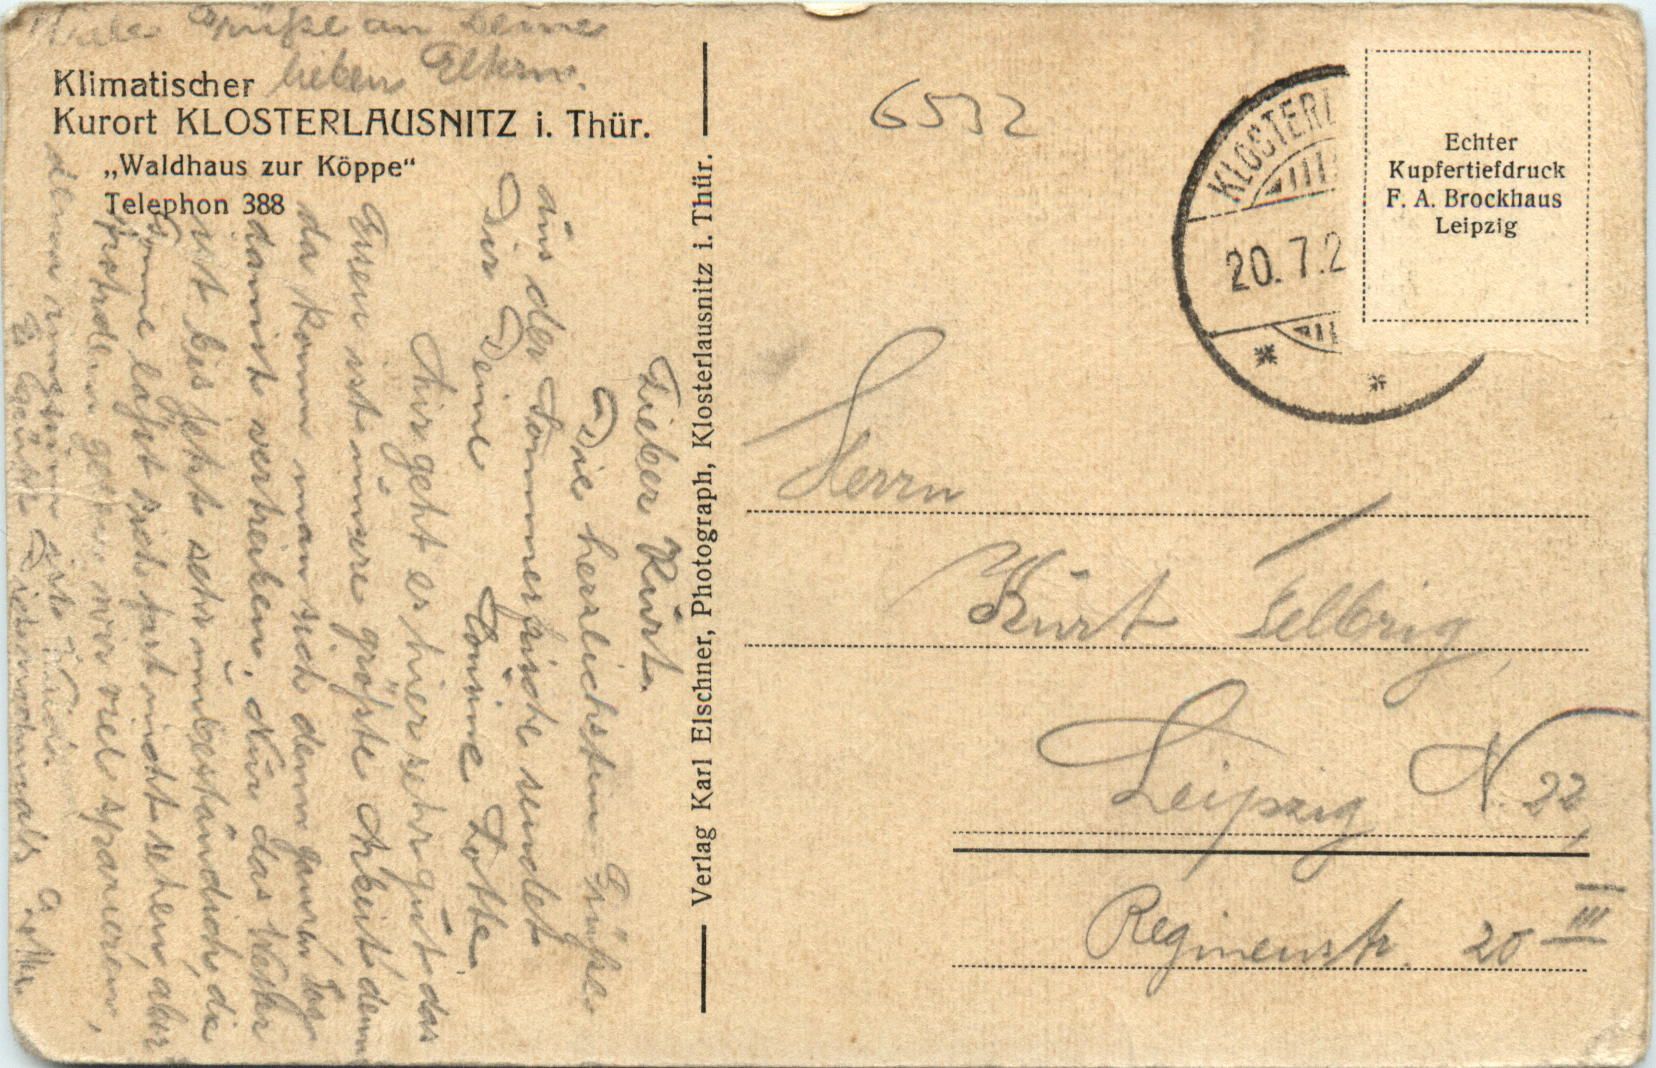 Viele Grüße an Deine
lieben Eltern.
Klimatischer
Kurort KLOSTERLAUSNITZ i. Thür.
„Waldhaus zur Köppe“
Telephon 388
Lieber Kurt.
Die herzlichsten Grüße
aus der Sommerfrische sendet
Dir Deine Lotte.
Mir geht es hier sehr gut das
Essen ist unsere größte Arbeit denn
da kann man sich den ganzen Tag
damit vertreiben. Nur das Wetter
ist bis jetzt sehr unbeständich, die
Sonne läßt sich fast nicht sehen, aber
trotzdem gehen wir viel spazieren,
denn
Es grüßt Dich nochmals
Verlag Karl Elschner, Photograph, Klosterlausnitz i. Thür.
6532
KLOSTERL
20. 7. 2
Echter
Kupfertiefdruck
F. A. Brockhaus
Leipzig
Herrn
Kurt Felbrig,
Leipzig N. 22,
Regimenstr. 20 III